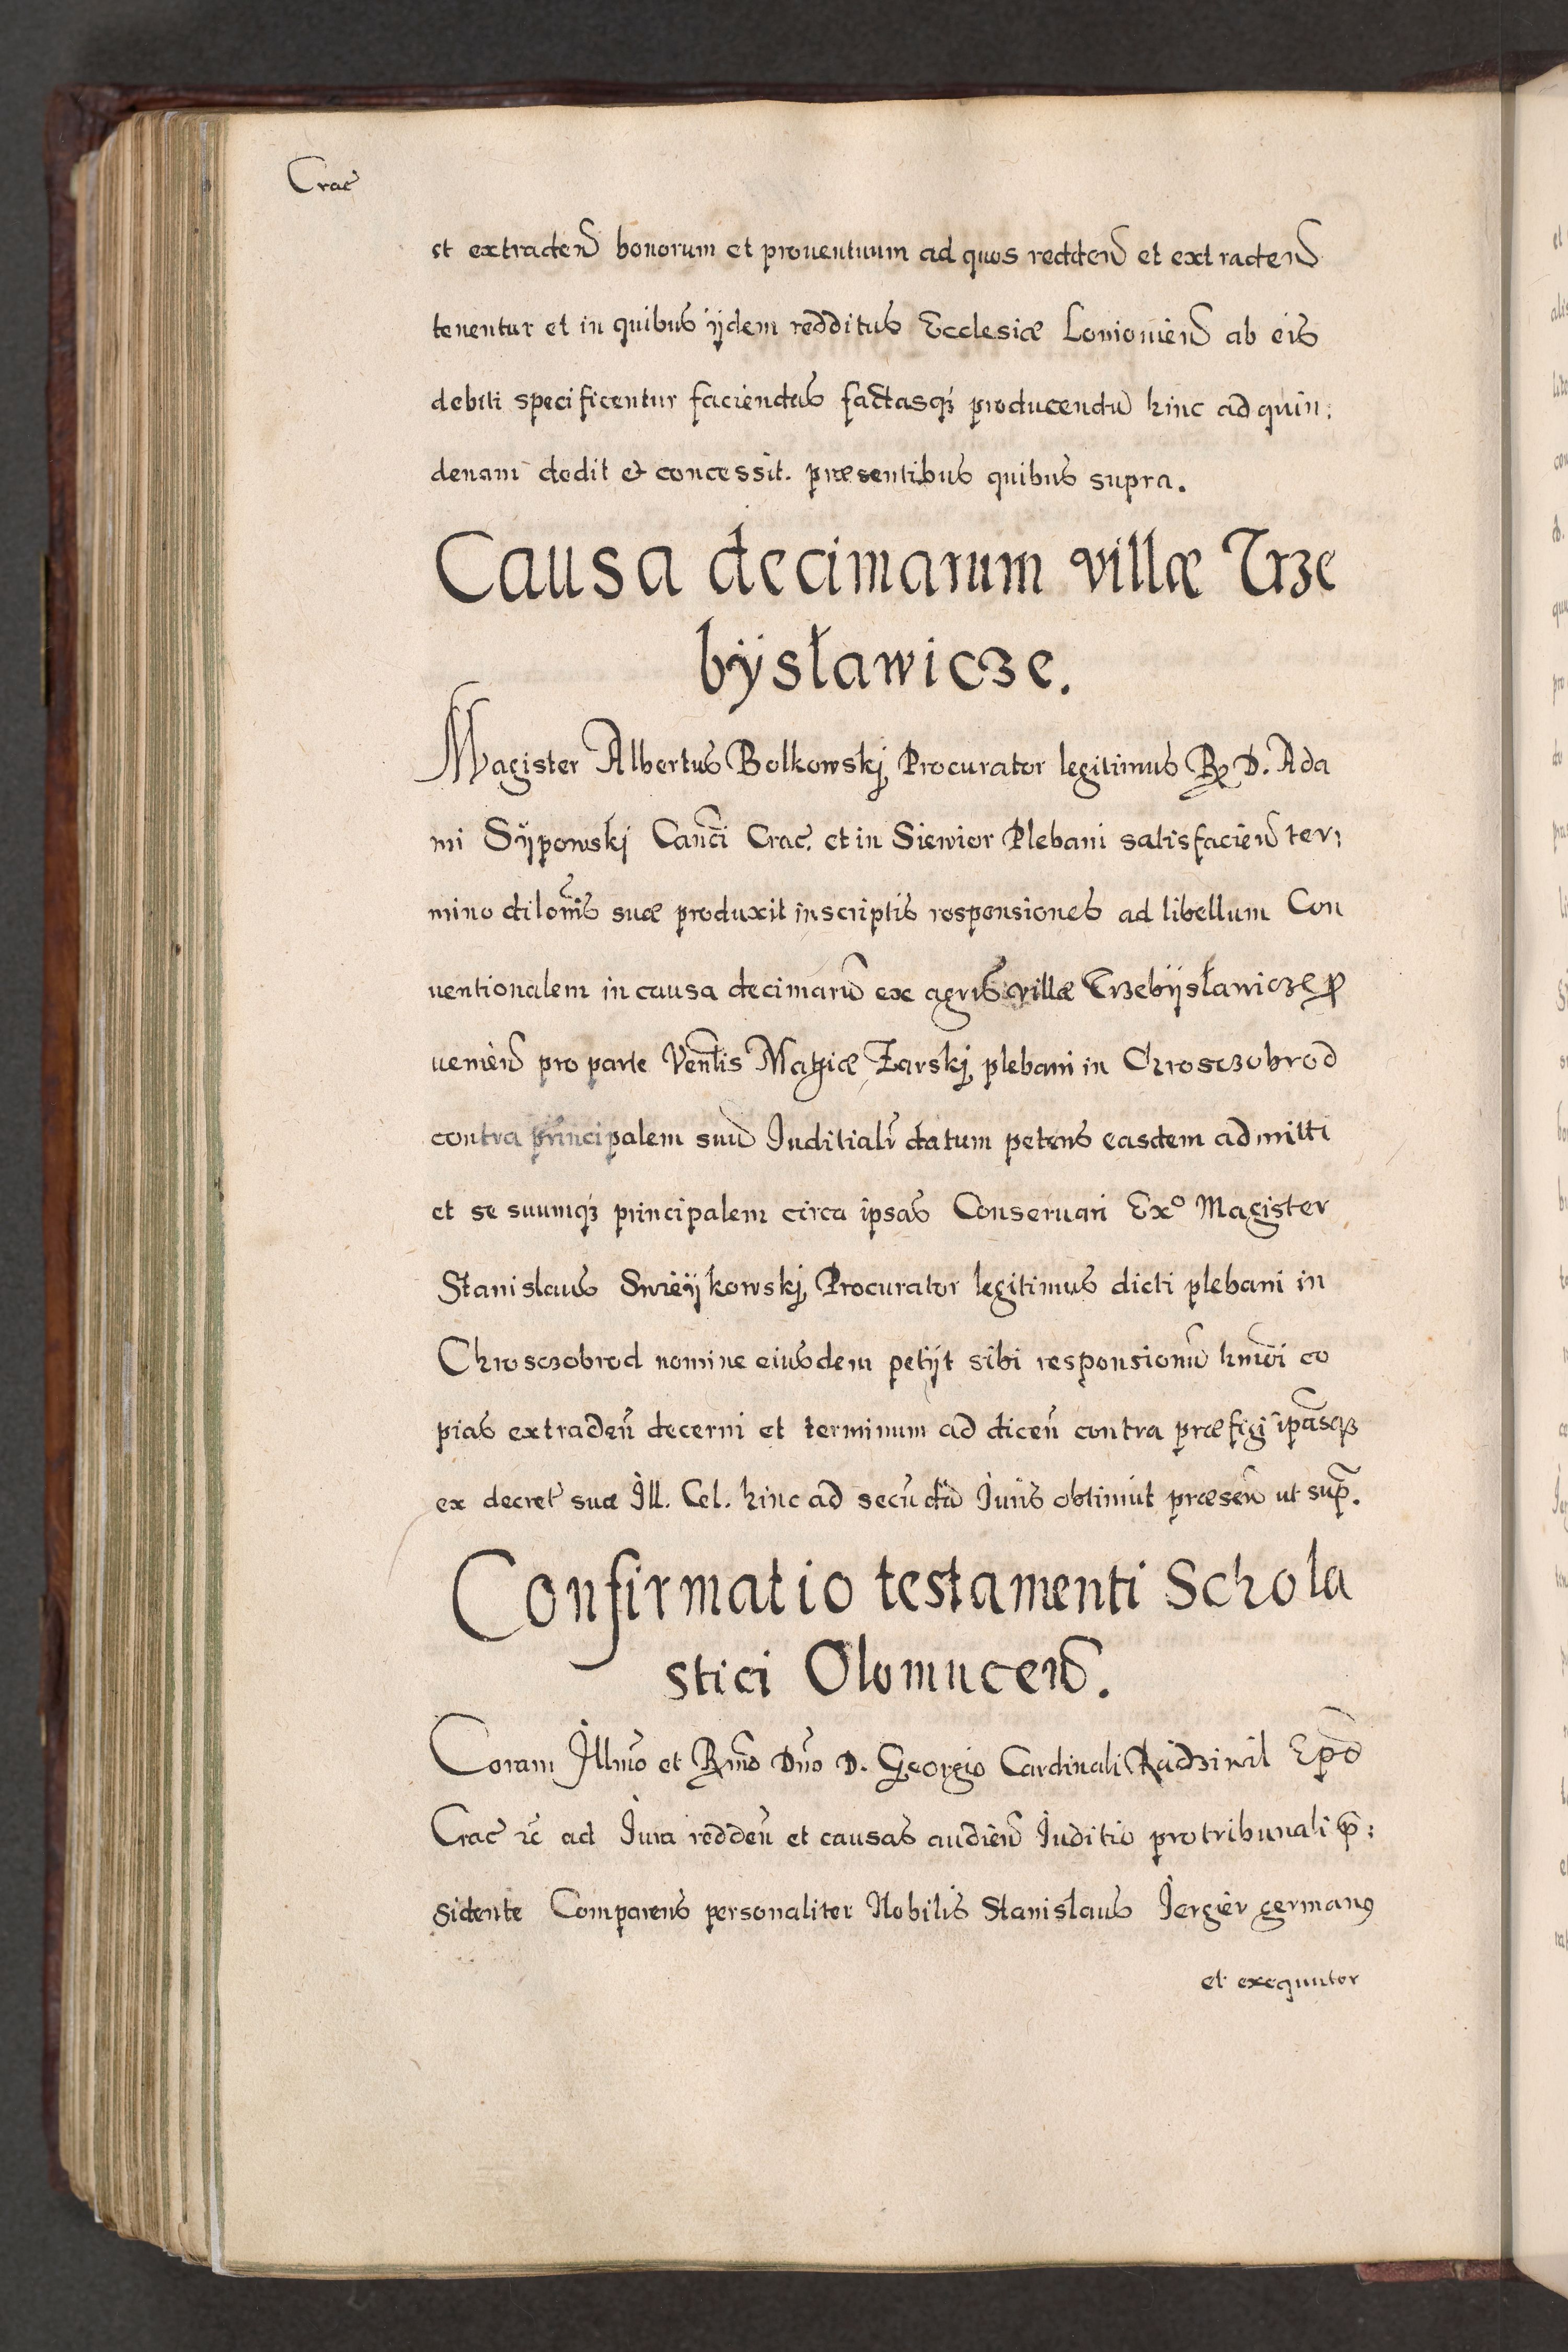 Crac
et extradeñ bonorum et prouentuum ad quos reddeñ et extradeñ
tenentur et in quibus ijdem redditus Ecclesiæ Loniowieñ ab eis
debiti specificentur faciendas factasq₃ producendũ hinc ad quin:
denam dedit et concessit. præsentibus quibus supra.
Causa decimarum villæ Trze
bÿsławicze.
Magister Albertus Bolkowskj Procurator legitimus R. D. Ada
mi Sÿpowskj Canci Crac. et in Siewior Plebani satisfacieñ ter:
mino dilomis suæ produxit in scriptis responsiones ad libellum Con
uentionalem in causa decimarũ ex agris villæ Trzebÿsławicze ꝓ
uenieñ pro parte Ventis Mathiæ Żarskj plebani in Chrosczobrod
contra principalem suũ Juditialr datum petens easdem admitti
et se suumq₃ principalem circa ipsas Conseruari Exº Magister
Stanislaus Swieÿkowskj Procurator legitimus dicti plebani in
Chrosczobrod nomine eiusdem petijt sibi responsionũ hmõi co
pias extradeñ decerni et terminum ad diceñ contra præfigi ipãsq₃
ex decret suæ Ill. Cel. hinc ad secundã Juris obtinuit præseñ ut sup̃.
Confirmatio testamenti Schola
stici Olomuceñ.
Coram Illmo et Rmo Dno D. Georgio Cardinali Radziwil Epõ
Crac ꝛc̃ ad Jura reddeñ et causas audieñ Juditio pro tribunali p̃:
sidente Comparens personaliter Nobilis Stanislaus Jergier germanꝰ
et exequutor